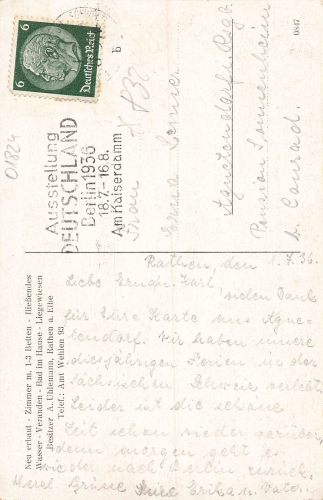 6
6
Deutsches Reich
Ausstellung
DEUTSCHLAND
Berlin 1936
18.7.-16.8.
Am Kaiserdamm
01824
0847
Frau
Erna
Agnetendorf Rsgb.
Pension Sonnenschein
b. Conrad.
Rathen, den 1.7.36.
Liebe Erna Karl, vielen Dank
für Eure Karte aus Agne-
tendorf. Wir haben unsere
diesjährigen Ferien in der
Sächsischen Schweiz verlebt.
Leider ist die schöne
Zeit schon wieder vorüber,
denn morgen geht es
wieder nach Berlin zurück.
Grüsse Eure Erika u. Vater.
Neu erbaut - Zimmer m. 1-3 Betten - fließendes
Wasser - Veranden - Bad im Hause - Liegewiesen
Besitzer A. Uhlemann, Rathen a. Elbe
Telef.: Amt Wehlen 93